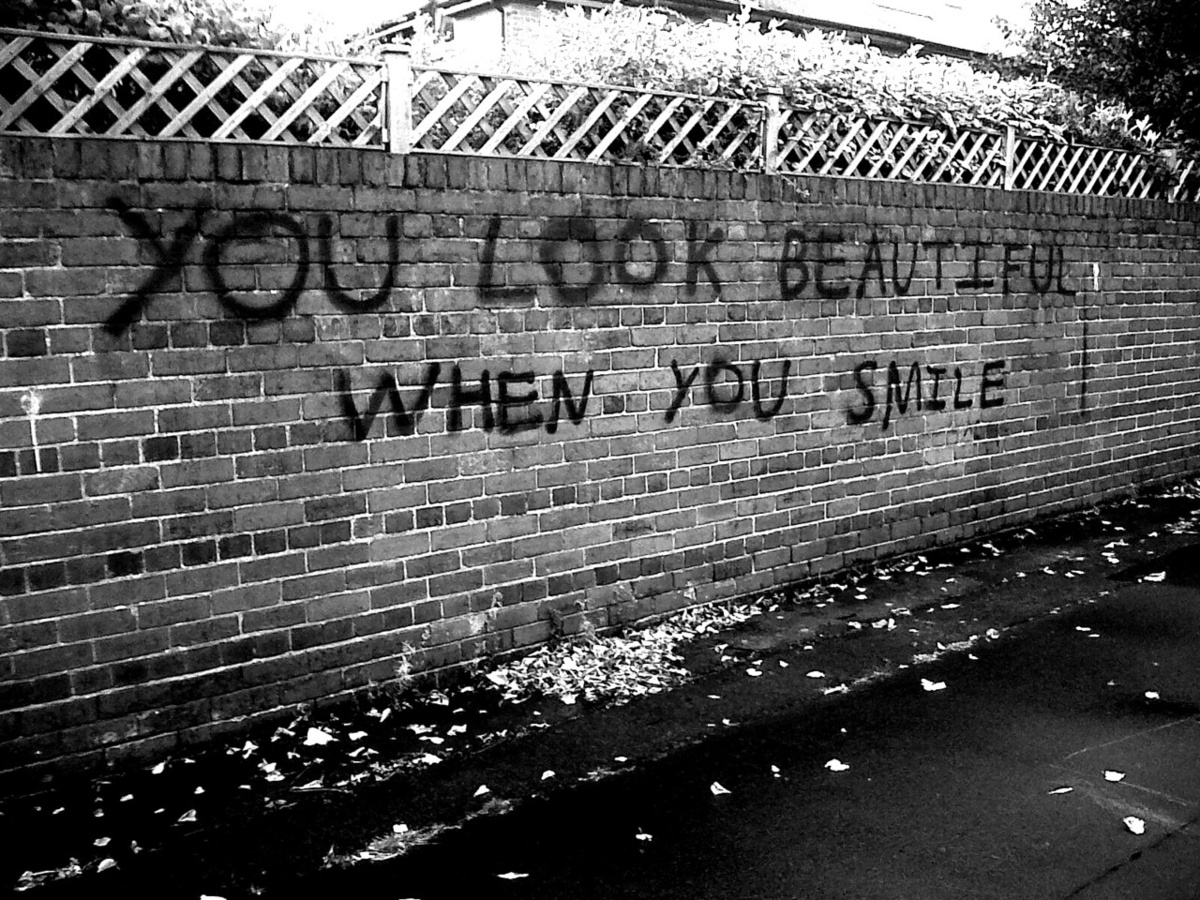 YOU LOOK BEAUTIFUL
WHEN YOU SMILE !